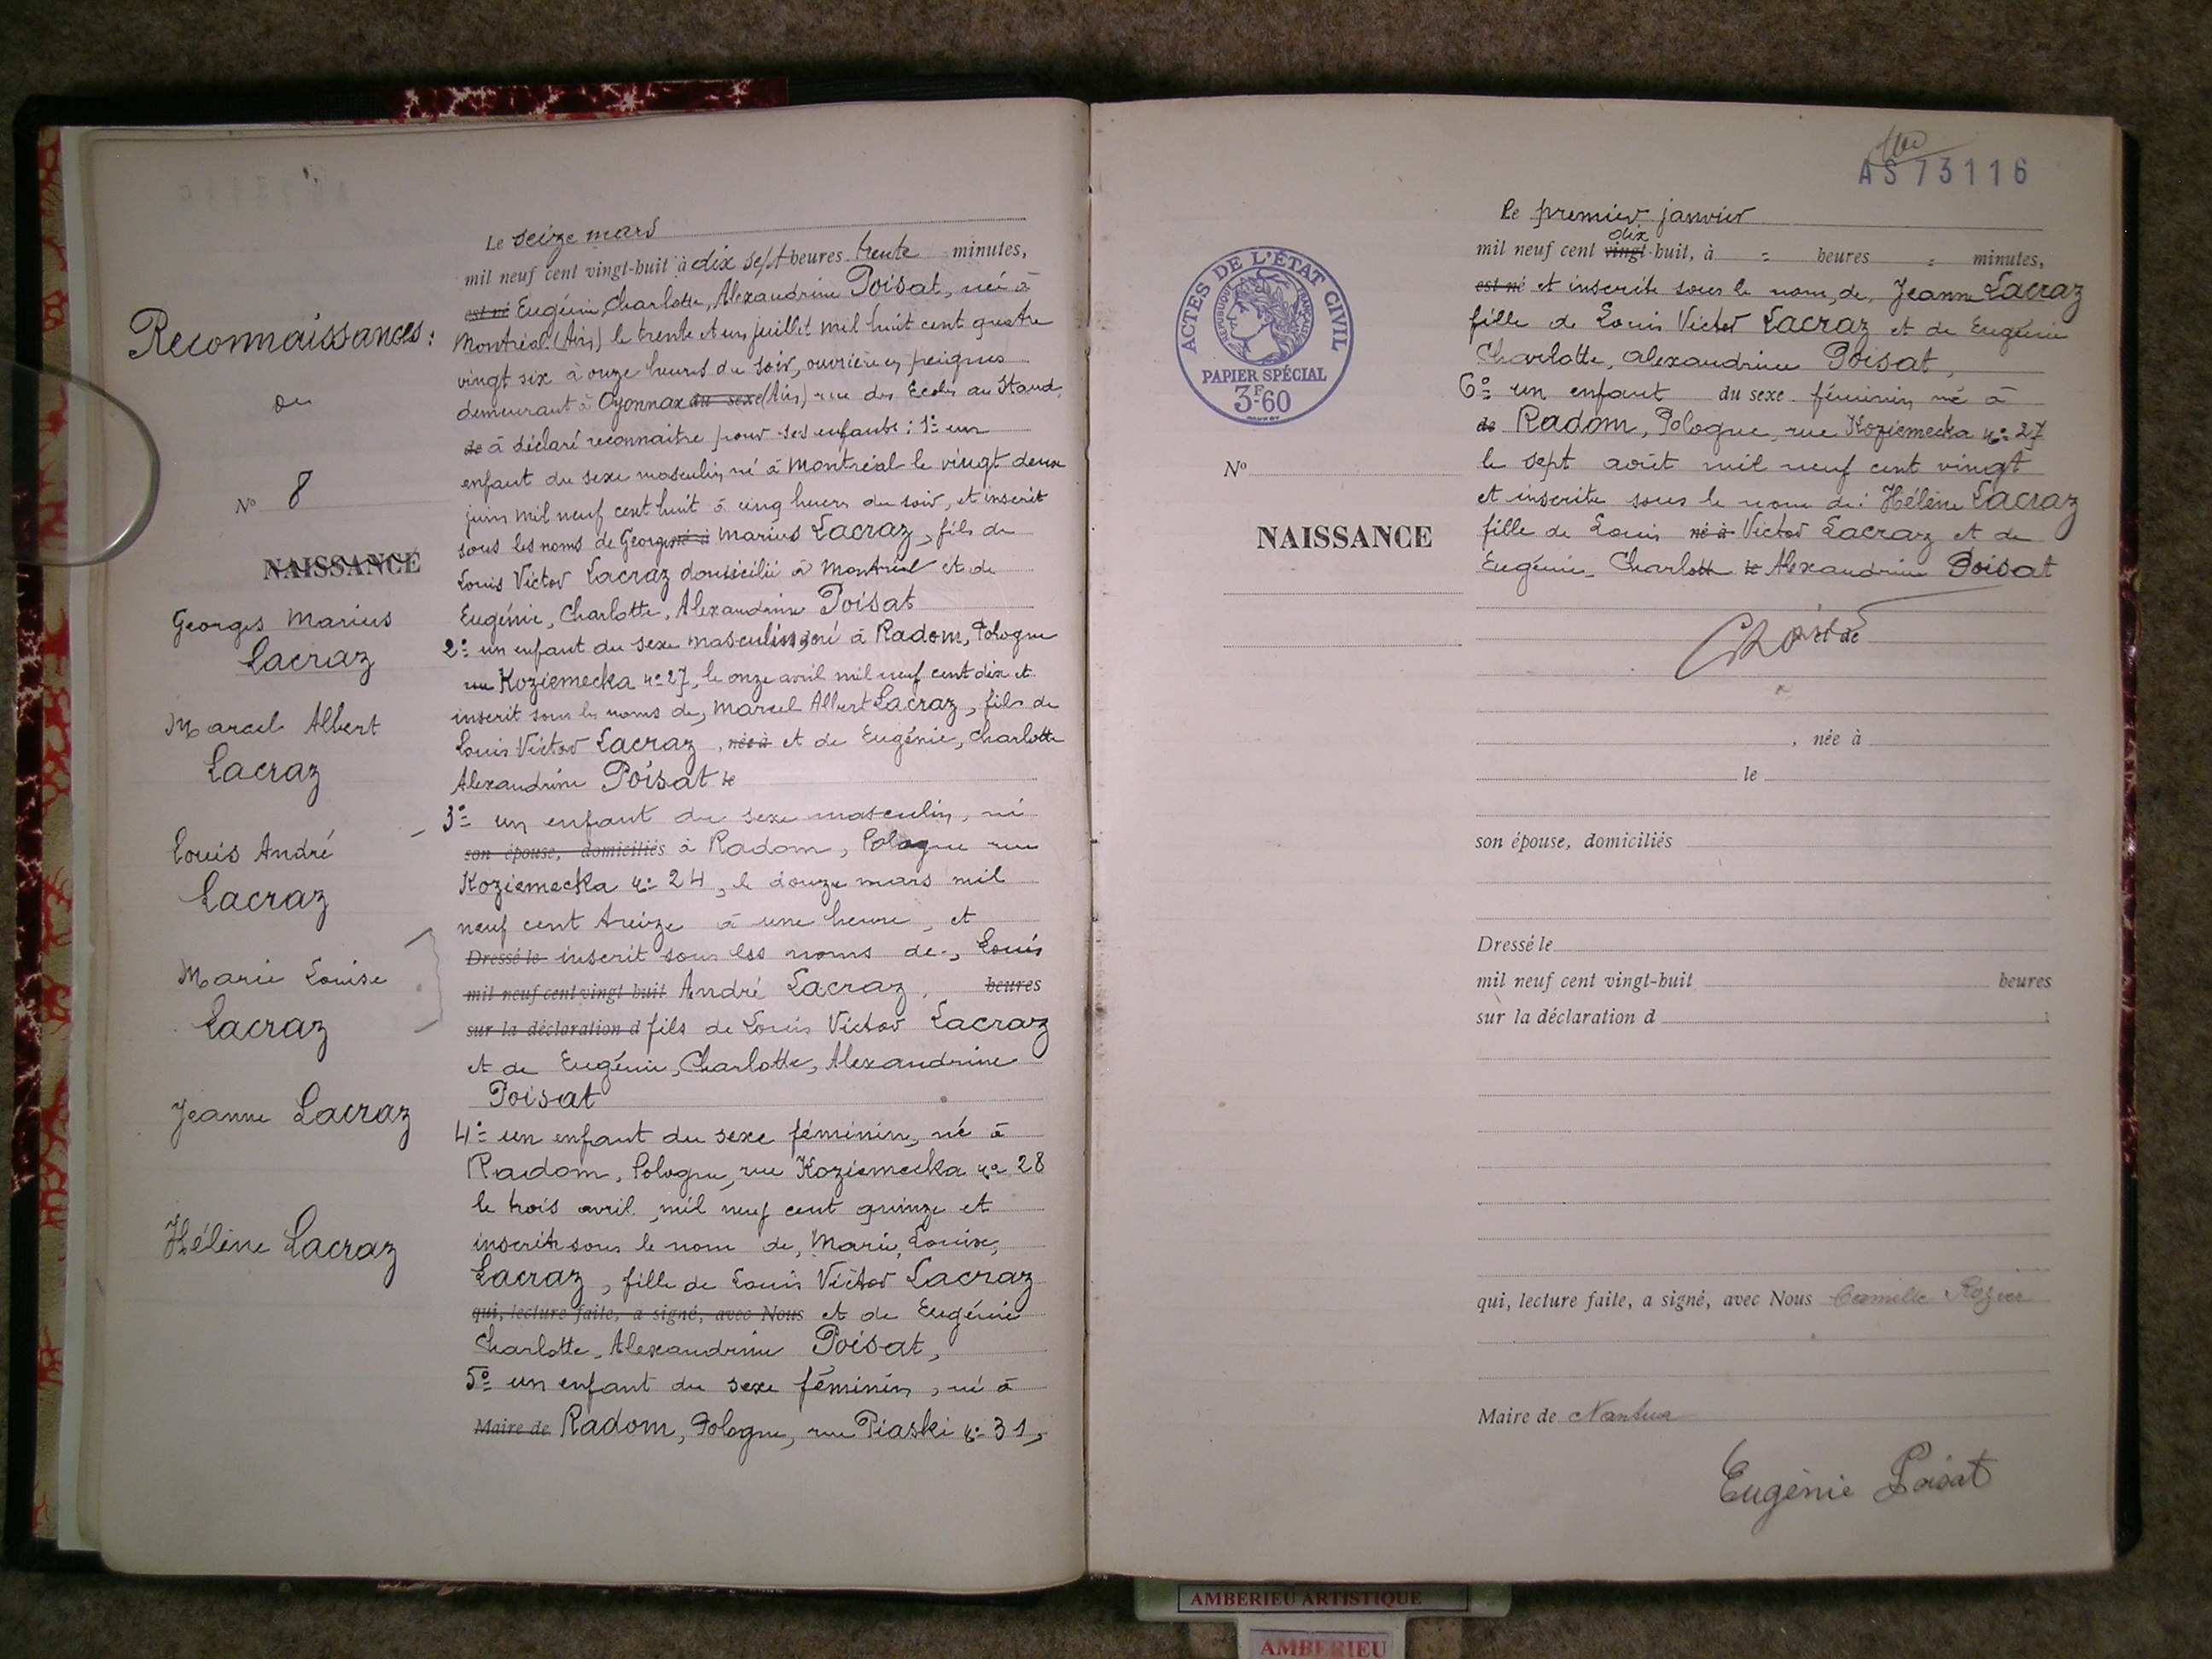 Reconnaissances:
de
N° 8
NAISSANCE
Georges Marius
Lacraz
Marcel Albert
Lacraz
Louis André
Lacraz
Marie Louise
Lacraz
Jeanne Lacraz
Hélène Lacraz
Le seize mars
mil neuf cent vingt-huit à dix sept heures trente minutes,
est né Eugénie, Charlotte, Alexandrine Poisat, née à
Montréal (Ain) le trente et un juillet mil huit cent quatre
vingt six à onze heures du soir, ouvrière en peignes
demeurant à Oyonnax du sexe (Ain) rue des Ecoles au Stand,
de à déclaré reconnaitre pour ses enfants: 1° un
enfant du sexe masculin né à Montréal le vingt deux
juin mil neuf cent huit à cinq heures du soir, et inscrit
sous les noms de Georges né à Marius Lacraz, fils de
Louis Victor Lacraz domicilié à Montréal et de
Eugénie, Charlotte, Alexandrine Poisat
2° un enfant du sexe masculin né à Radom, Pologne
rue Koziemecka n° 27, le onze avril mil neuf cent dix et
inscrit sous les noms de, Marcel Albert Lacraz, fils de
Louis Victor Lacraz, née à et de Eugénie, Charlotte
Alexandrine Poisat le
3° un enfant du sexe masculin, né
son épouse, domiciliés à Radom, Pologne rue
Koziemecka n° 24, le douze mars mil
neuf cent treize à une heure, et
Dressé le inscrit sous les noms de, Louis
mil neuf cent vingt-huit André Lacraz, heures
sur la déclaration d fils de Louis Victor Lacraz
et de Eugénie, Charlotte, Alexandrine
Poisat
4° un enfant du sexe féminin, né à
Radom, Pologne, rue Koziemecka n° 28
le trois avril mil neuf cent quinze et
inscrite sous le nom de, Marie, Louise,
Lacraz, fille de Louis Victor Lacraz
qui, lecture faite, a signé, avec Nous et de Eugénie
Charlotte, Alexandrine Poisat,
5° un enfant du sexe féminin, né à
Maire de Radom, Pologne, rue Piaski n° 31,
AS 73116
ACTES DE L'ÉTAT CIVIL
RÉPUBLIQUE FRANÇAISE
PAPIER SPÉCIAL
3F60
N°
NAISSANCE
Le premier janvier
dix
mil neuf cent vingt-huit, à = heures = minutes,
est né et inscrite sous le nom, de, Jeanne Lacraz
fille de Louis Victor Lacraz et de Eugénie
Charlotte, Alexandrine Poisat,
6° un enfant du sexe féminin né à
de Radom, Pologne, rue Koziemecka n° 27
le sept août mil neuf cent vingt
et inscrite sous le nom de: Hélène Lacraz
fille de Louis né à Victor Lacraz et de
Eugénie, Charlotte le Alexandrine Poisat
et de
, née à
le
son épouse, domiciliés
Dressé le
mil neuf cent vingt-huit heures
sur la déclaration d
qui, lecture faite, a signé, avec Nous Camille Rozier
Maire de Nantua
Eugénie Poisat
AMBERIEU ARTISTIQUE
AMBERIEU